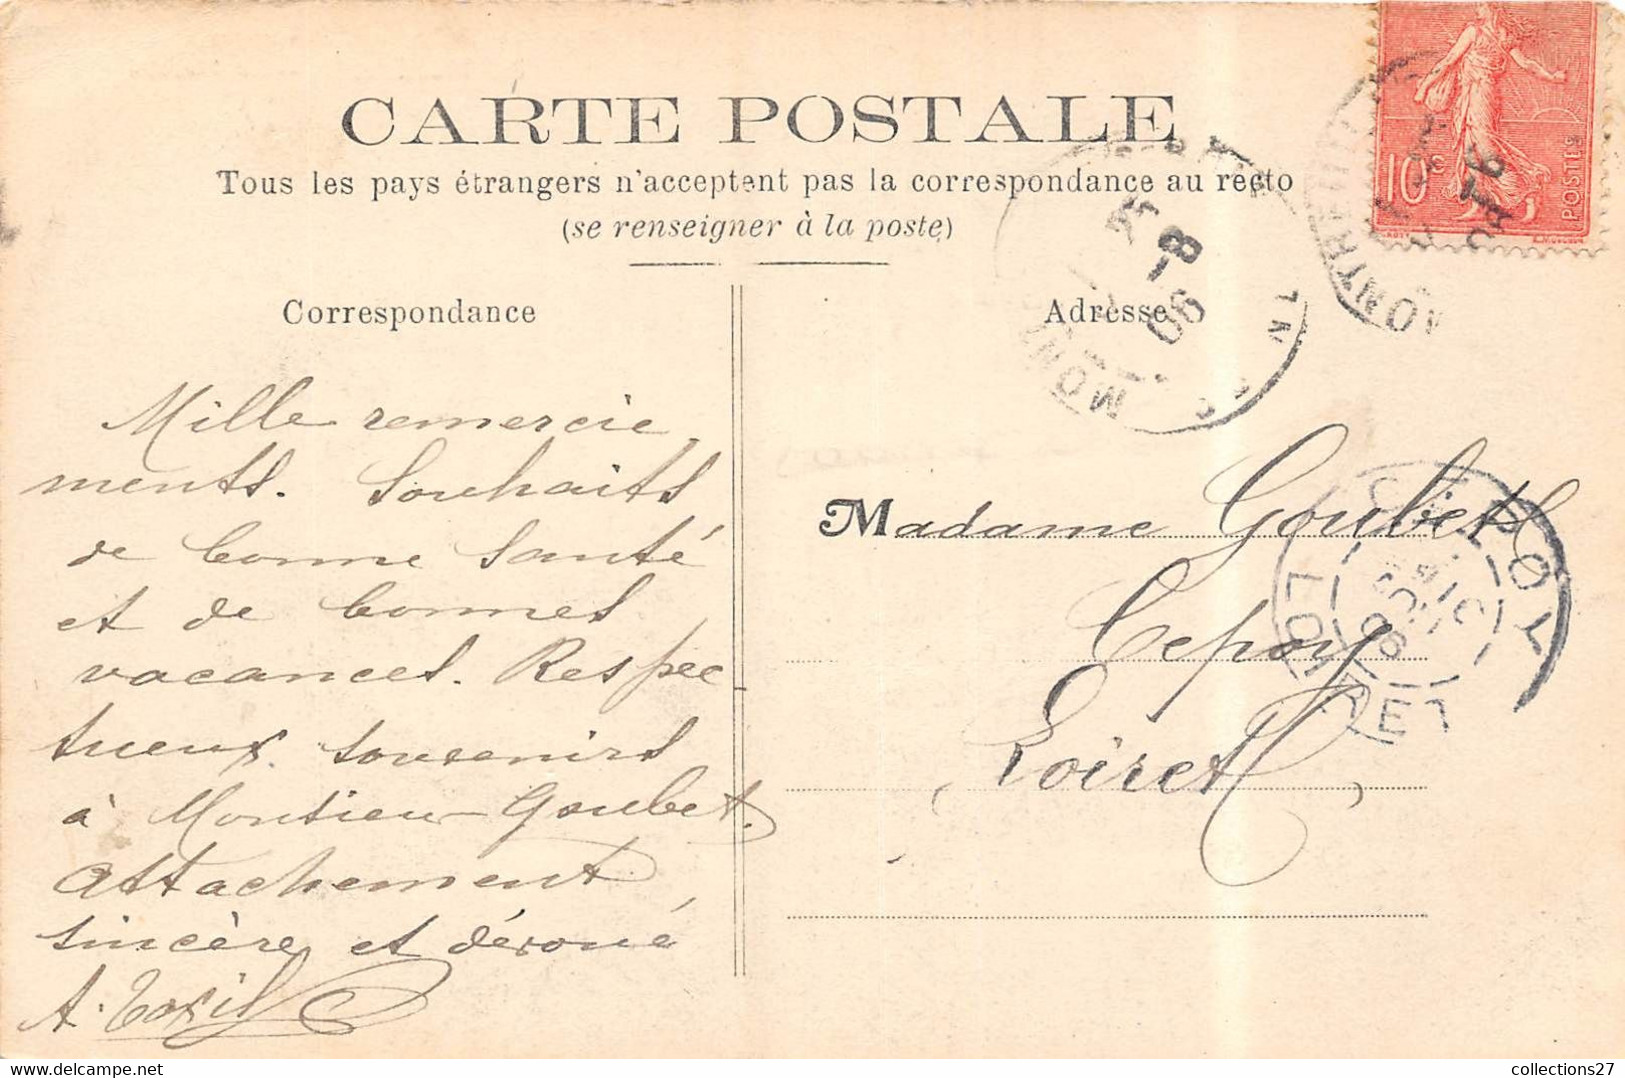 CARTE POSTALE
Tous les pays étrangers n'acceptent pas la correspondance au recto
(se renseigner à la poste)
10c
POSTES
8
06
Correspondance
Adresse
Mille remercie
ments. Souhaits
de bonne santé
et de bonnes
vacances. Respec
tueux souvenirs
à Monsieur Goubet.
Attachement
sincère et dévoué
Madame Goubet
Cepoy
Loiret
CEPOY
LOIRET
collections27